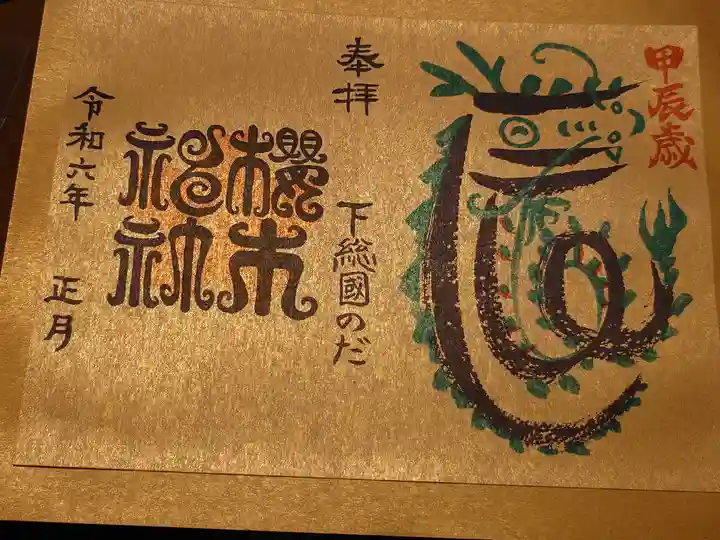 甲辰歳
辰
奉拝
下総國のだ
櫻木
神社
令和六年 正月